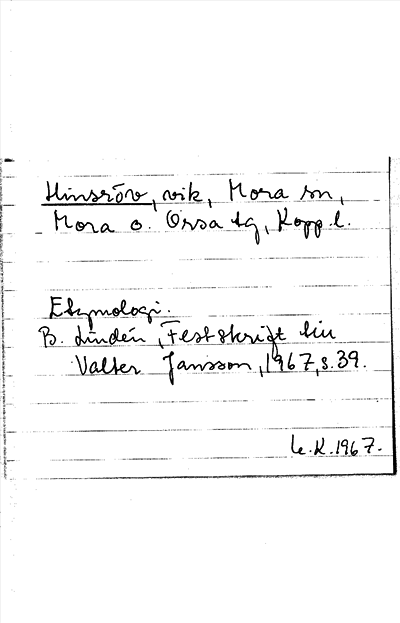 Hinsröv, vik, Mora sn,
Mora o. Orsa tg, Kopp.l.
Etymologi:
B. Lindén, Festskrift till
Valter Jansson, 1967, s. 39.
K. 1967.